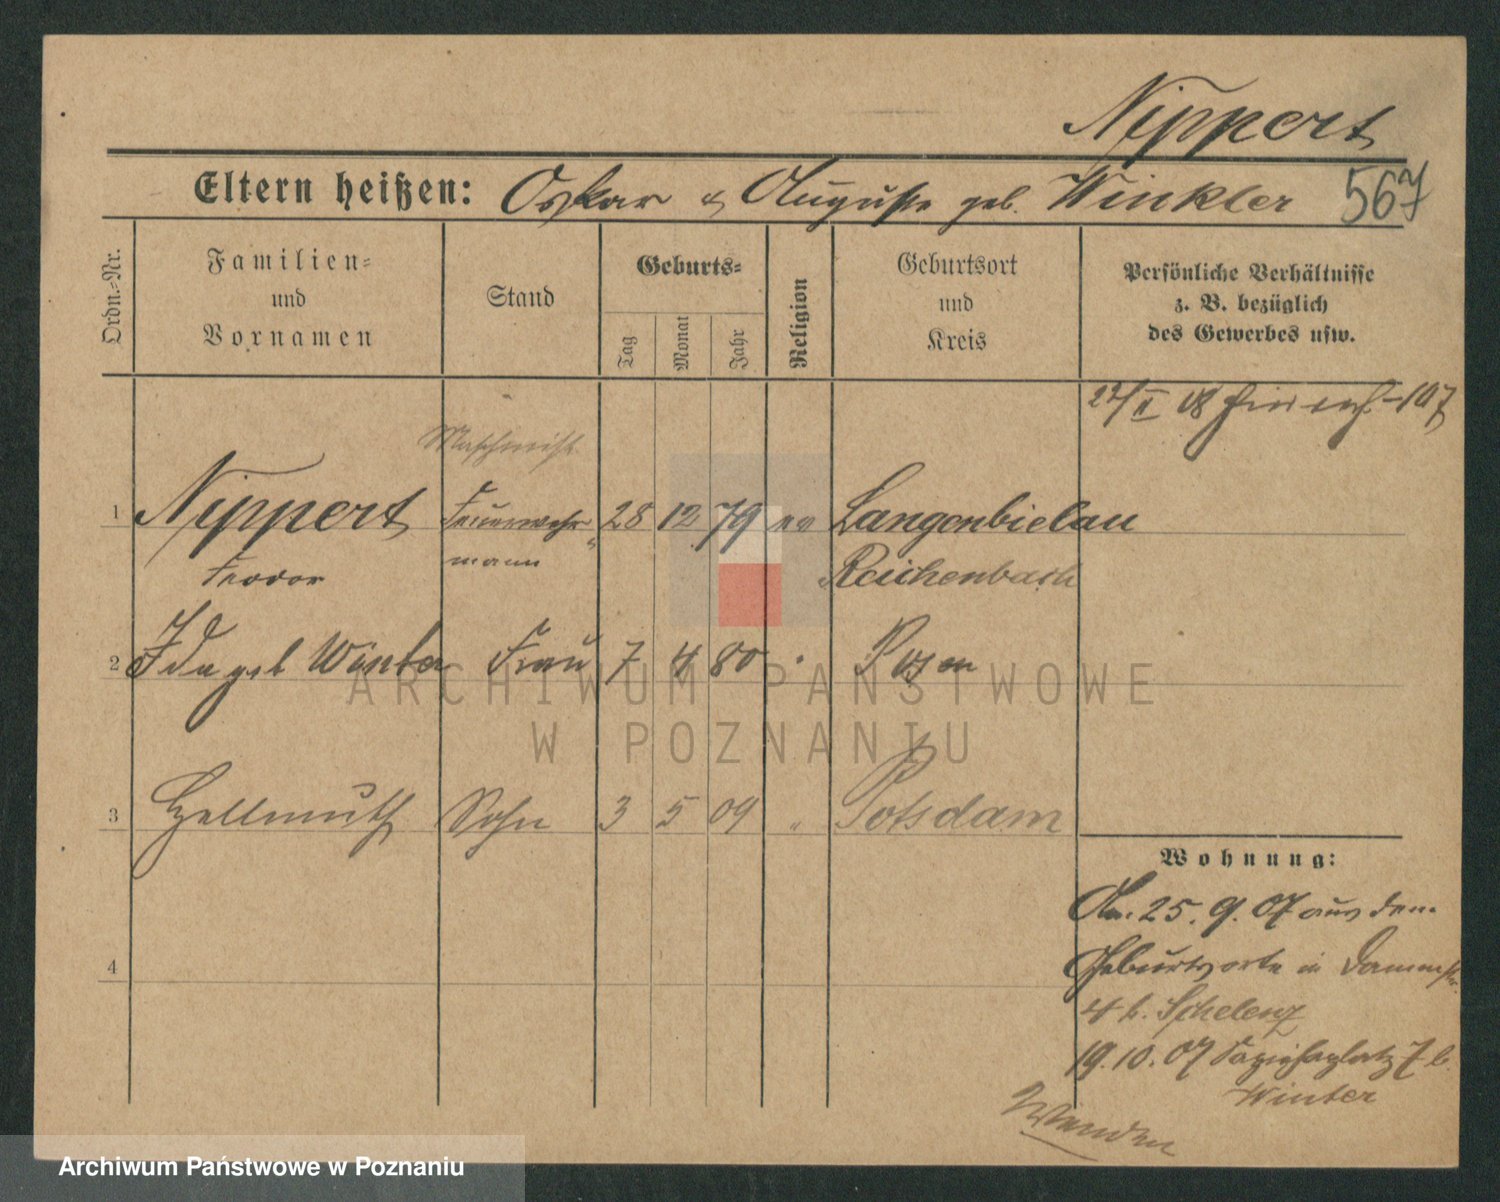 Nippert
Eltern heißen: Oskar & Auguste geb. Winkler 567
Ordn.-Nr.
Familien-
und
Vornamen
Stand
Geburts-
Tag
Monat
Jahr
Religion
Geburtsort
und
Kreis
Persönliche Verhältnisse
z. B. bezüglich
des Gewerbes usw.
22/II 18
Maschinist
1 Nippert Feuerwehr- 28 12 79 ev Langenbielau
Teodor mann Reichenbach
2 Ida geb Winter Frau 7 4 80 " Posen
ARCHIWUM PAŃSTWOWE
W POZNANIU
3 Hellmuth Sohn 3 5 09 " Potsdam
Wohnung:
Am. 25. 9. 07 aus dem
4 Geburtsorte in Dammstr.
4 b. Schelenz
19. 10. 07 Sapiehaplatz 7 b.
Winter
Wenden
Archiwum Państwowe w Poznaniu